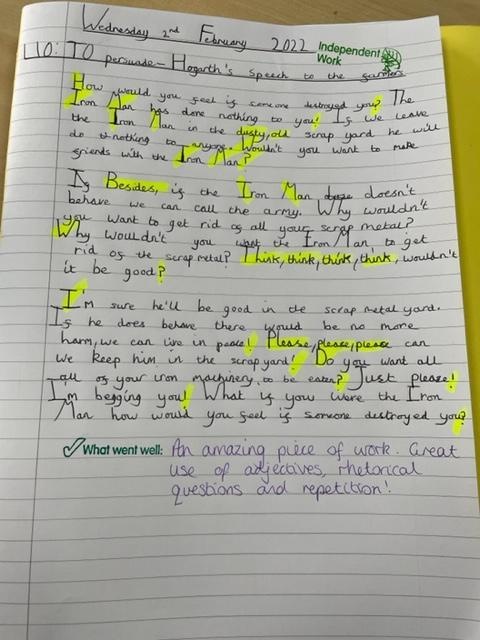 Wednesday 2nd February 2022
Independent Work
LIO: TO persuade - Hogarth's speech to the farmers
How would you feel if someone destroyed you? The
Iron Man has done nothing to you! If we leave
the Iron Man in the dusty, old scrap yard he will
do nothing to anyone. Wouldn't you want to make
friends with the Iron Man?
If Besides, if the Iron Man doesn't
behave we can call the army. Why wouldn't
you want to get rid of all your scrap metal?
Why wouldn't you want the Iron Man, to get
rid of the scrap metal? Think, think, think, think, wouldn't
it be good?
I'm sure he'll be good in the scrap metal yard.
If he does behave there would be no more
harm, we can live in peace! Please, please, please can
we keep him in the scrap yard! Do you want all
all of your iron machinery, to be eaten? Just please!
I'm begging you! What if you were the Iron
Man how would you feel if someone destroyed you?
What went well: An amazing piece of work. Great
use of adjectives, rhetorical
questions and repetition!